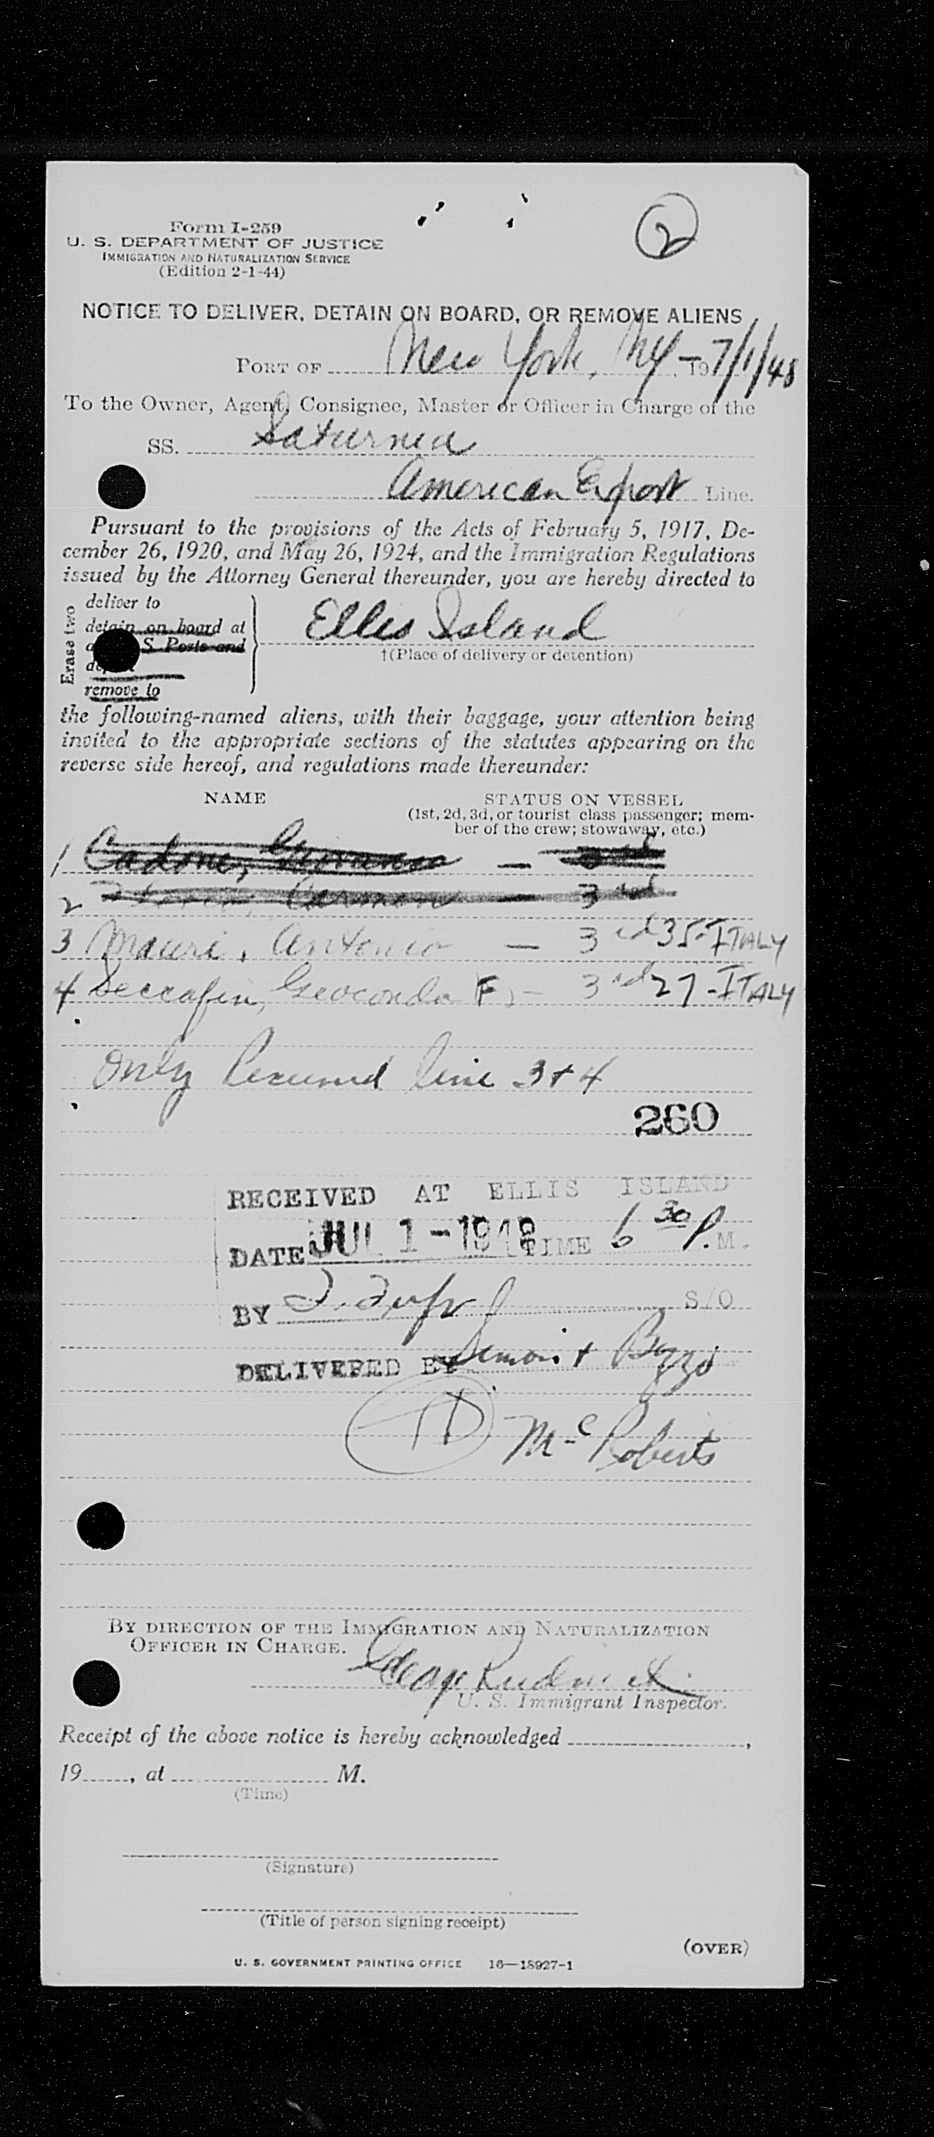 2
Form I-259
U. S. DEPARTMENT OF JUSTICE
IMMIGRATION AND NATURALIZATION SERVICE
(Edition 2-1-44)
NOTICE TO DELIVER, DETAIN ON BOARD, OR REMOVE ALIENS
PORT OF New York, NY - 19 7/1/48
To the Owner, Agent, Consignee, Master or Officer in Charge of the
SS. Saturnia
American Export Line.
Pursuant to the provisions of the Acts of February 5, 1917, De-
cember 26, 1920, and May 26, 1924, and the Immigration Regulations
issued by the Attorney General thereunder, you are hereby directed to
Erase two
deliver to
detain on board at
S. Posts and
remove to
Ellis Island
†(Place of delivery or detention)
the following-named aliens, with their baggage, your attention being
invited to the appropriate sections of the statutes appearing on the
reverse side hereof, and regulations made thereunder:
NAME STATUS ON VESSEL
(1st, 2d, 3d, or tourist class passenger; mem-
ber of the crew; stowaway, etc.)
1 Cadone, —
2 Carmen — 3rd
3 Mauri, Antonio — 3rd 35-ITALY
4 Geoconda F) - 3rd 27-ITALY
Only Received line 3+4
260
RECEIVED AT ELLIS ISLAND
DATE JUL 1-1948 TIME 6 30 P.M.
BY S/O
DELIVERED BY Simon + Bozzo
McRoberts
BY DIRECTION OF THE IMMIGRATION AND NATURALIZATION
OFFICER IN CHARGE.
U. S. Immigrant Inspector.
Receipt of the above notice is hereby acknowledged ,
19 , at M.
(Time)
(Signature)
(Title of person signing receipt)
(OVER)
U. S. GOVERNMENT PRINTING OFFICE 16—18927-1